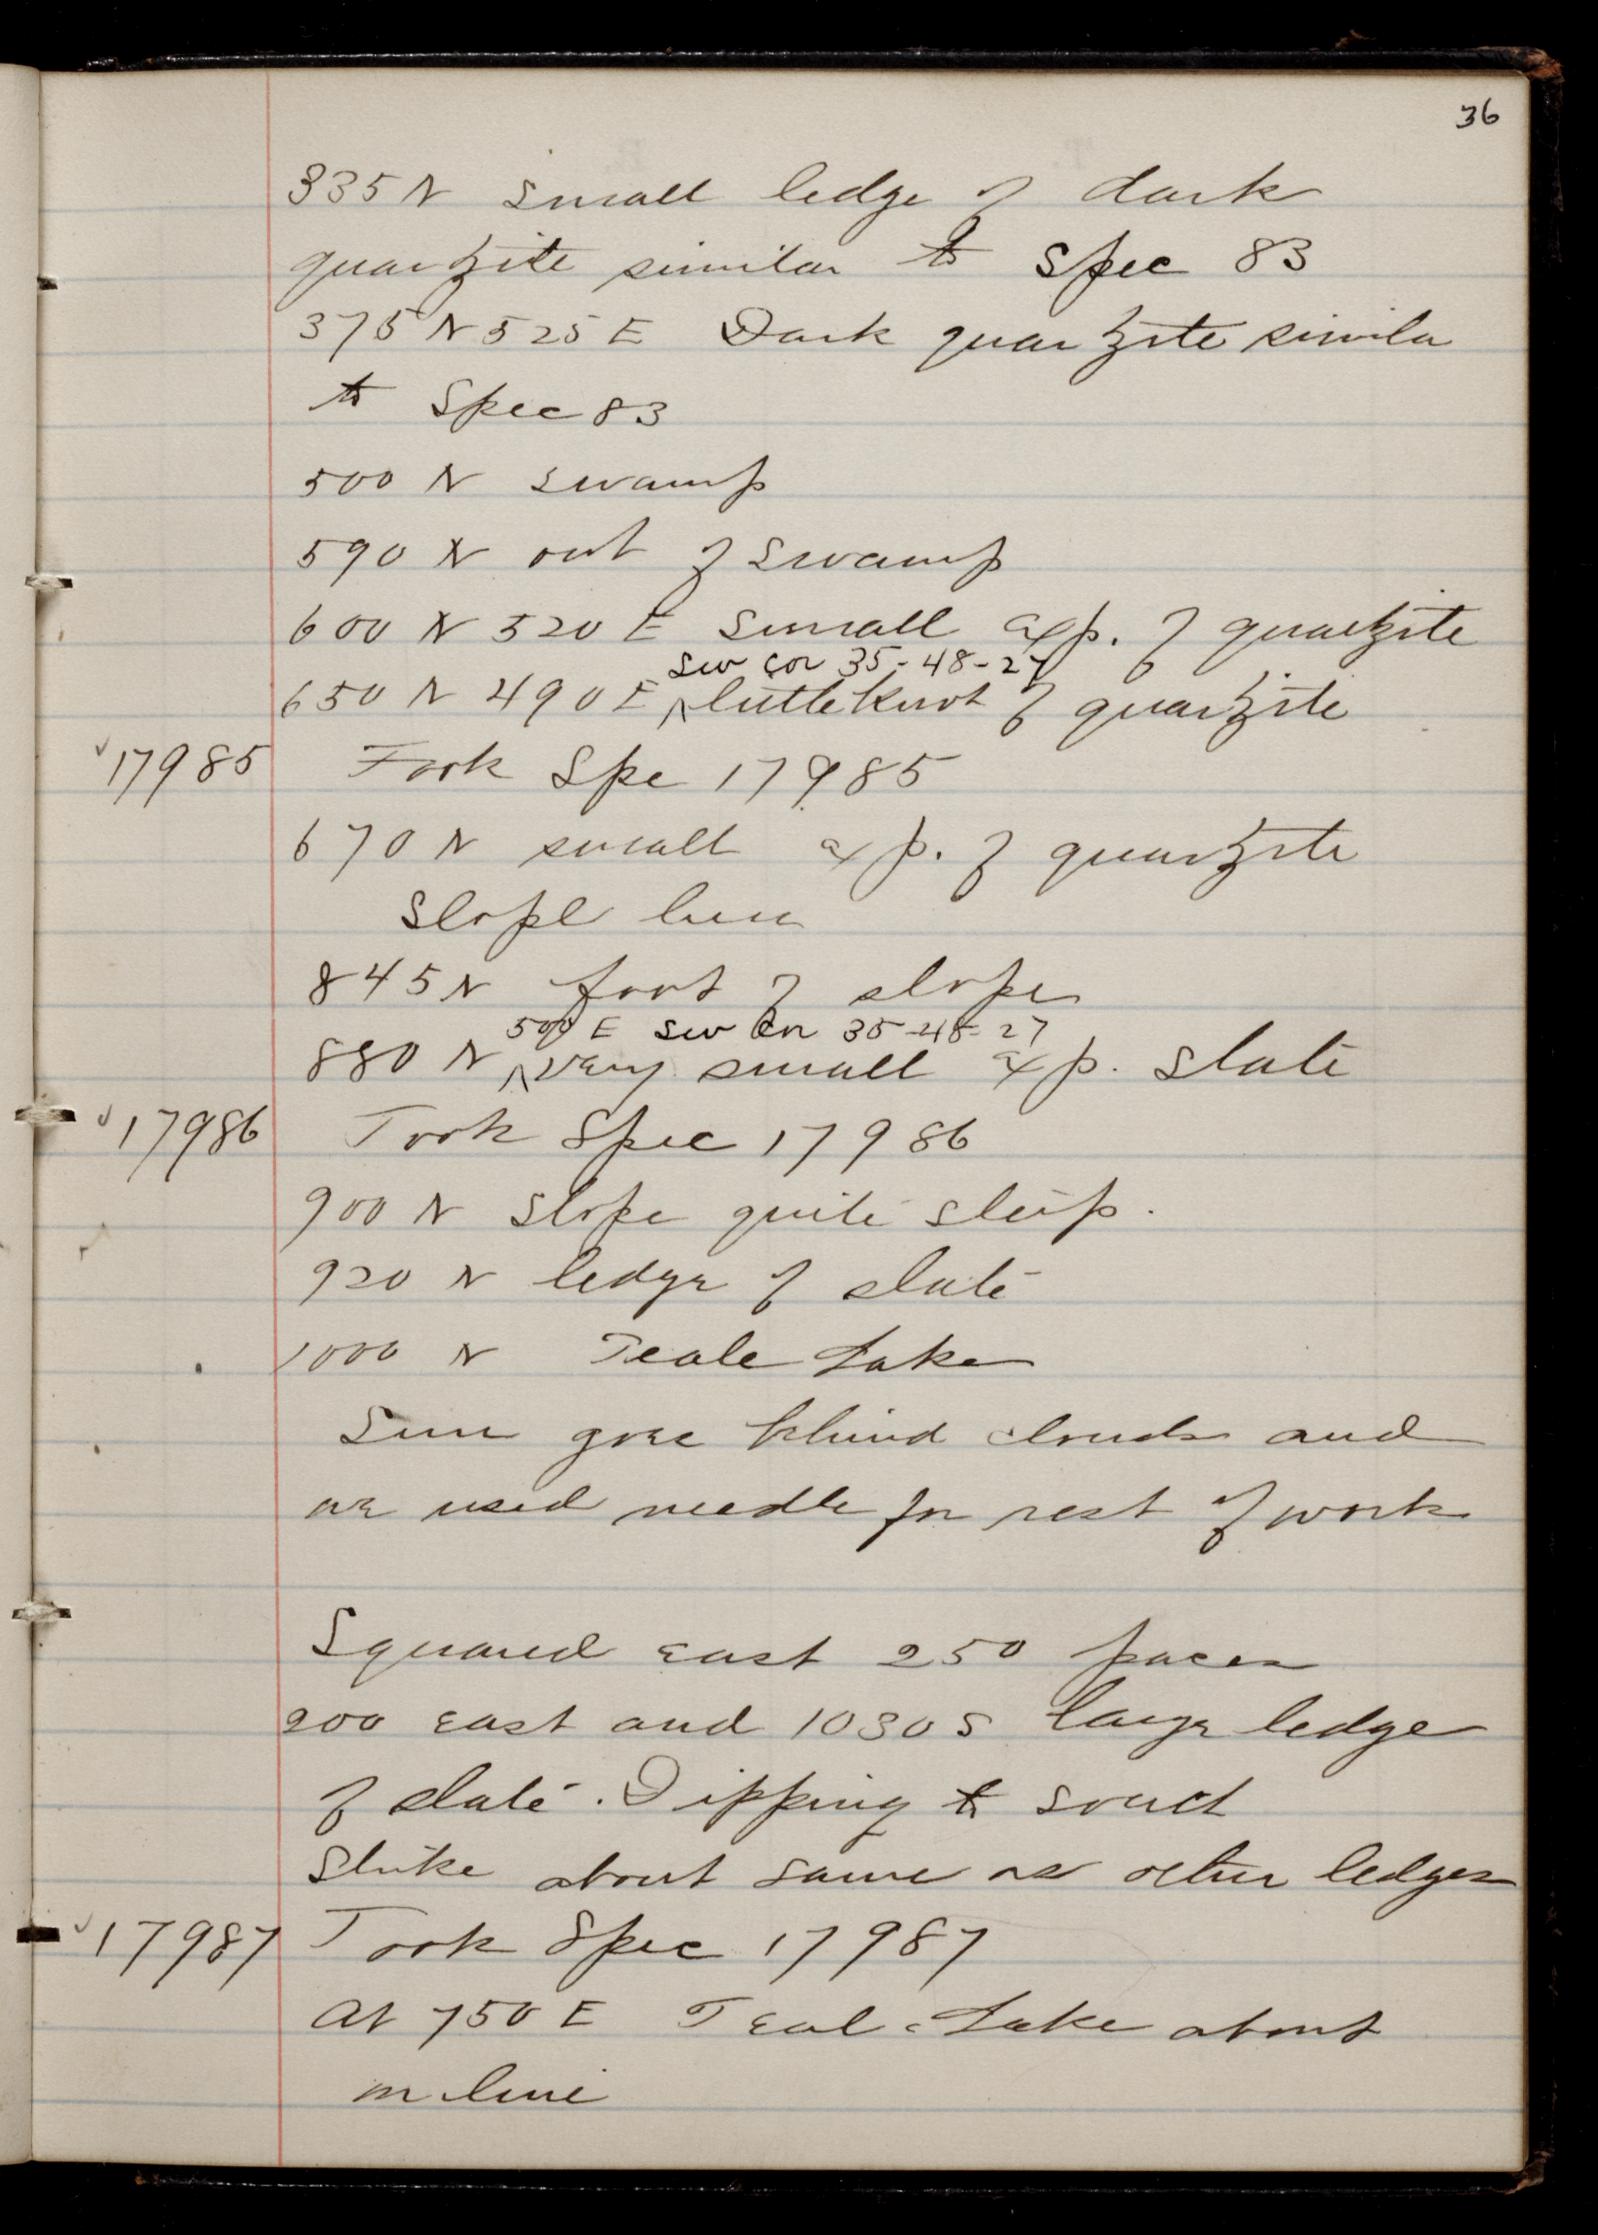 36
335 N small ledge of dark
quartzite similar to Spec 83
375 N 525 E Dark quartzite similar
to Spec 83
500 N swamp
590 N out of swamp
600 N 520 E small exp. of quartzite
SW Cor 35-48-27
650 N 490 E ^ little knot of quartzite
17985 Took Spe 17985
670 N small exp. of quartzite
Slope here
845 N foot of slope
500 E SW Cor 35-48-27
880 N ^ very small exp. slate
17986 Took Spec 17986
900 N slope quite steep.
920 N ledge of slate
1000 N Teale Lake
Sun gone behind clouds and
we used needle for rest of work
Squared east 250 paces
200 east and 1030 S large ledge
of slate. Dipping to south
Strike about same as other ledges
17987 Took Spec 17987
At 750 E Teal Lake about
on line